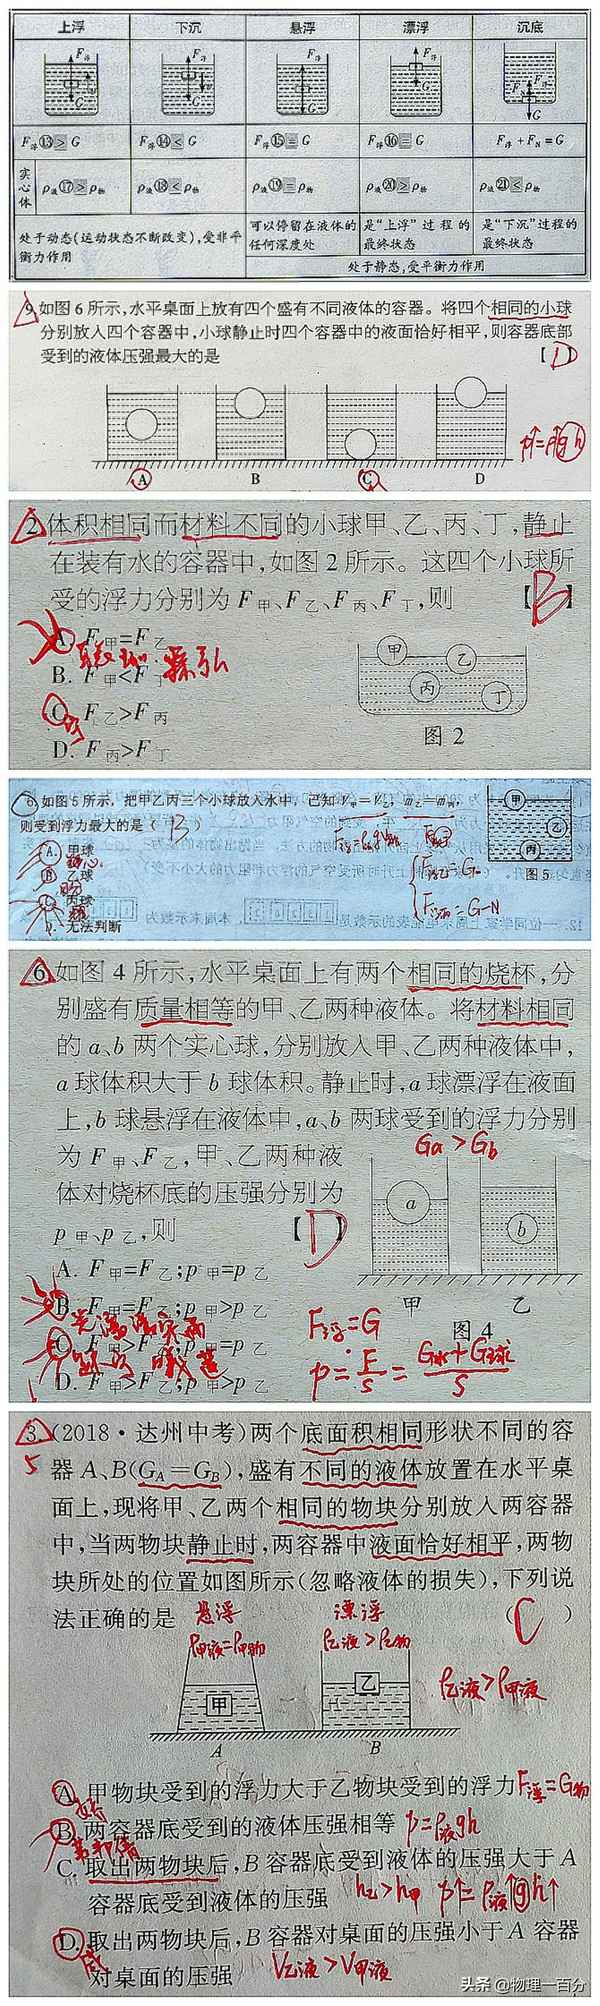 上浮 下沉 悬浮 漂浮 沉底
F浮 G F浮 G F浮 G F浮 G F浮 FN G
F浮⑬> G F浮⑭< G F浮⑮= G F浮⑯= G F浮+FN=G
实心体 ρ液⑰>ρ物 ρ液⑱<ρ物 ρ液⑲=ρ物 ρ液⑳>ρ物 ρ液㉑<ρ物
处于动态(运动状态不断改变),受非平衡力作用
可以停留在液体的任何深度处
是“上浮”过程的最终状态
是“下沉”过程的最终状态
处于静态,受平衡力作用
9.如图6所示,水平桌面上放有四个盛有不同液体的容器。将四个相同的小球
分别放入四个容器中,小球静止时四个容器中的液面恰好相平,则容器底部
受到的液体压强最大的是 【D】
p↑=ρ↑gh
A B C D
2.体积相同而材料不同的小球甲、乙、丙、丁,静止
在装有水的容器中,如图2所示。这四个小球所
受的浮力分别为F甲、F乙、F丙、F丁,则 【B】
A. F甲=F乙
B. F甲<F丁
C. F乙>F丙
D. F丙>F丁
甲 乙 丙 丁
图2
6.如图5所示,把甲乙丙三个小球放入水中,已知V甲=V乙,m乙=m丙,
则受到浮力最大的是( B )
A. 甲球
B. 乙球
C. 丙球
D. 无法判断
甲 乙 丙
图5
F浮丙=G-N
6.如图4所示,水平桌面上有两个相同的烧杯,分
别盛有质量相等的甲、乙两种液体。将材料相同
的a、b两个实心球,分别放入甲、乙两种液体中,
a球体积大于b球体积。静止时,a球漂浮在液面
上,b球悬浮在液体中,a、b两球受到的浮力分别
为F甲、F乙,甲、乙两种液
体对烧杯底的压强分别为
p甲、p乙,则 【D】
Ga>Gb
a b
甲 乙
图4
A. F甲=F乙;p甲=p乙
B. F甲=F乙;p甲>p乙
C. F甲>F乙;p甲=p乙
D. F甲>F乙;p甲>p乙
F浮=G
p=F/S=(G水+G球)/S
3.(2018·达州中考)两个底面积相同形状不同的容
5
器A、B(GA=GB),盛有不同的液体放置在水平桌
面上,现将甲、乙两个相同的物块分别放入两容器
中,当两物块静止时,两容器中液面恰好相平,两物
块所处的位置如图所示(忽略液体的损失),下列说
法正确的是 ( C )
悬浮 漂浮
ρ甲液=ρ甲物 ρ乙液>ρ乙物
ρ乙液>ρ甲液
甲 乙
A B
A. 甲物块受到的浮力大于乙物块受到的浮力 F浮=G物
B. 两容器底受到的液体压强相等 p=ρ液gh
C. 取出两物块后,B容器底受到液体的压强大于A
容器底受到液体的压强 h乙>h甲 p↑=ρ液↑gh↑
D. 取出两物块后,B容器对桌面的压强小于A容器
对桌面的压强 V乙液>V甲液
头条 @物理一百分